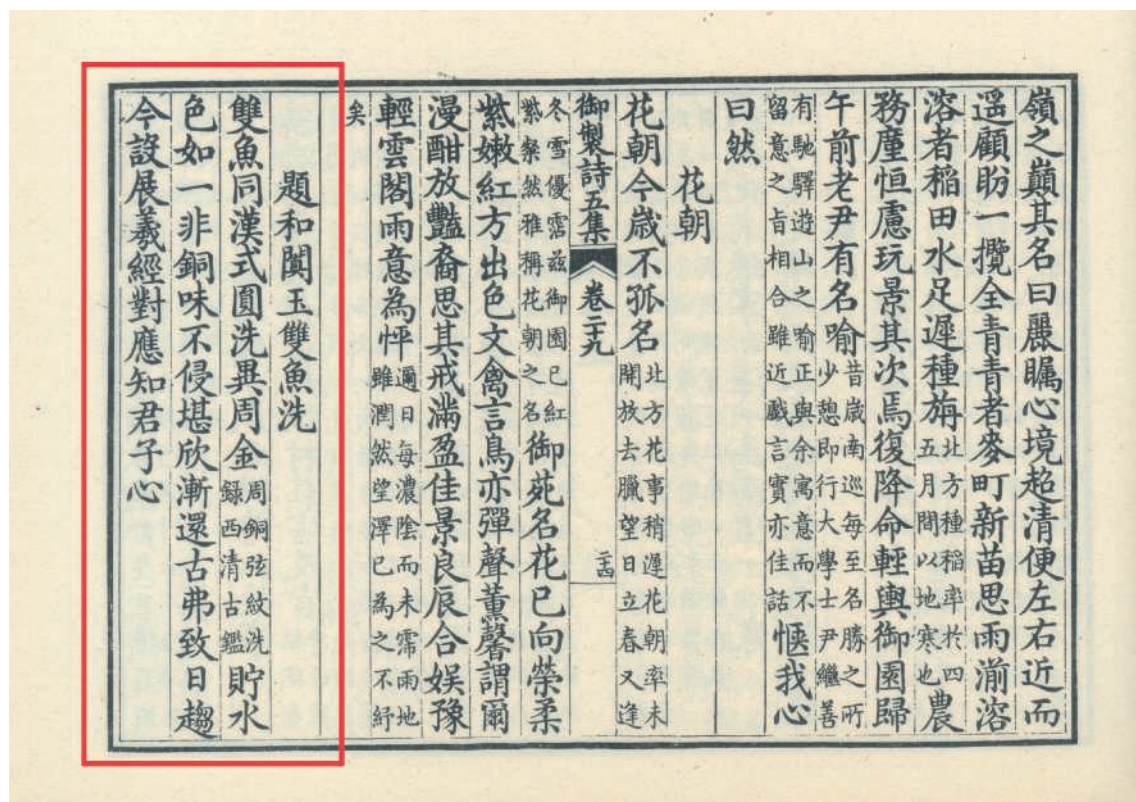 嶺之巔其名曰麗矚心境超清便左右近而
遥顧盼一攬全青青者麥町新苗思雨湔溶
溶者稻田水足遲種旃北方種稻率於四五月間以地寒也農
務廑恒慮玩景其次焉復降命輕輿御園歸
午前老尹有名喻昔歲南巡每至名勝之所少憩即行大學士尹繼善
有馳驛遊山之喻正與余寓意而不留意之旨相合雖近戲言實亦佳話愜我心
曰然
花朝
花朝今歲不孤名北方花事稍遲花朝率未開放去臘望日立春又逢
御製詩五集 卷二十九 二十四
冬雪優霑兹御園已紅紫粲然雅稱花朝之名御苑名花已向榮柔
紫嫩紅方出色文禽言鳥亦彈聲薰馨謂爾
漫酣放豔裔思其戒滿盈佳景良辰合娱豫
輕雲閣雨意為怦邇日每濃陰而未霈雨地雖潤然望澤已為之不紓
矣
題和闐玉雙魚洗
雙魚同漢式圓洗異周金周銅弦紋洗録西清古鑑貯水
色如一非銅味不侵堪欣漸還古弗致日趨
今設展羲經對應知君子心